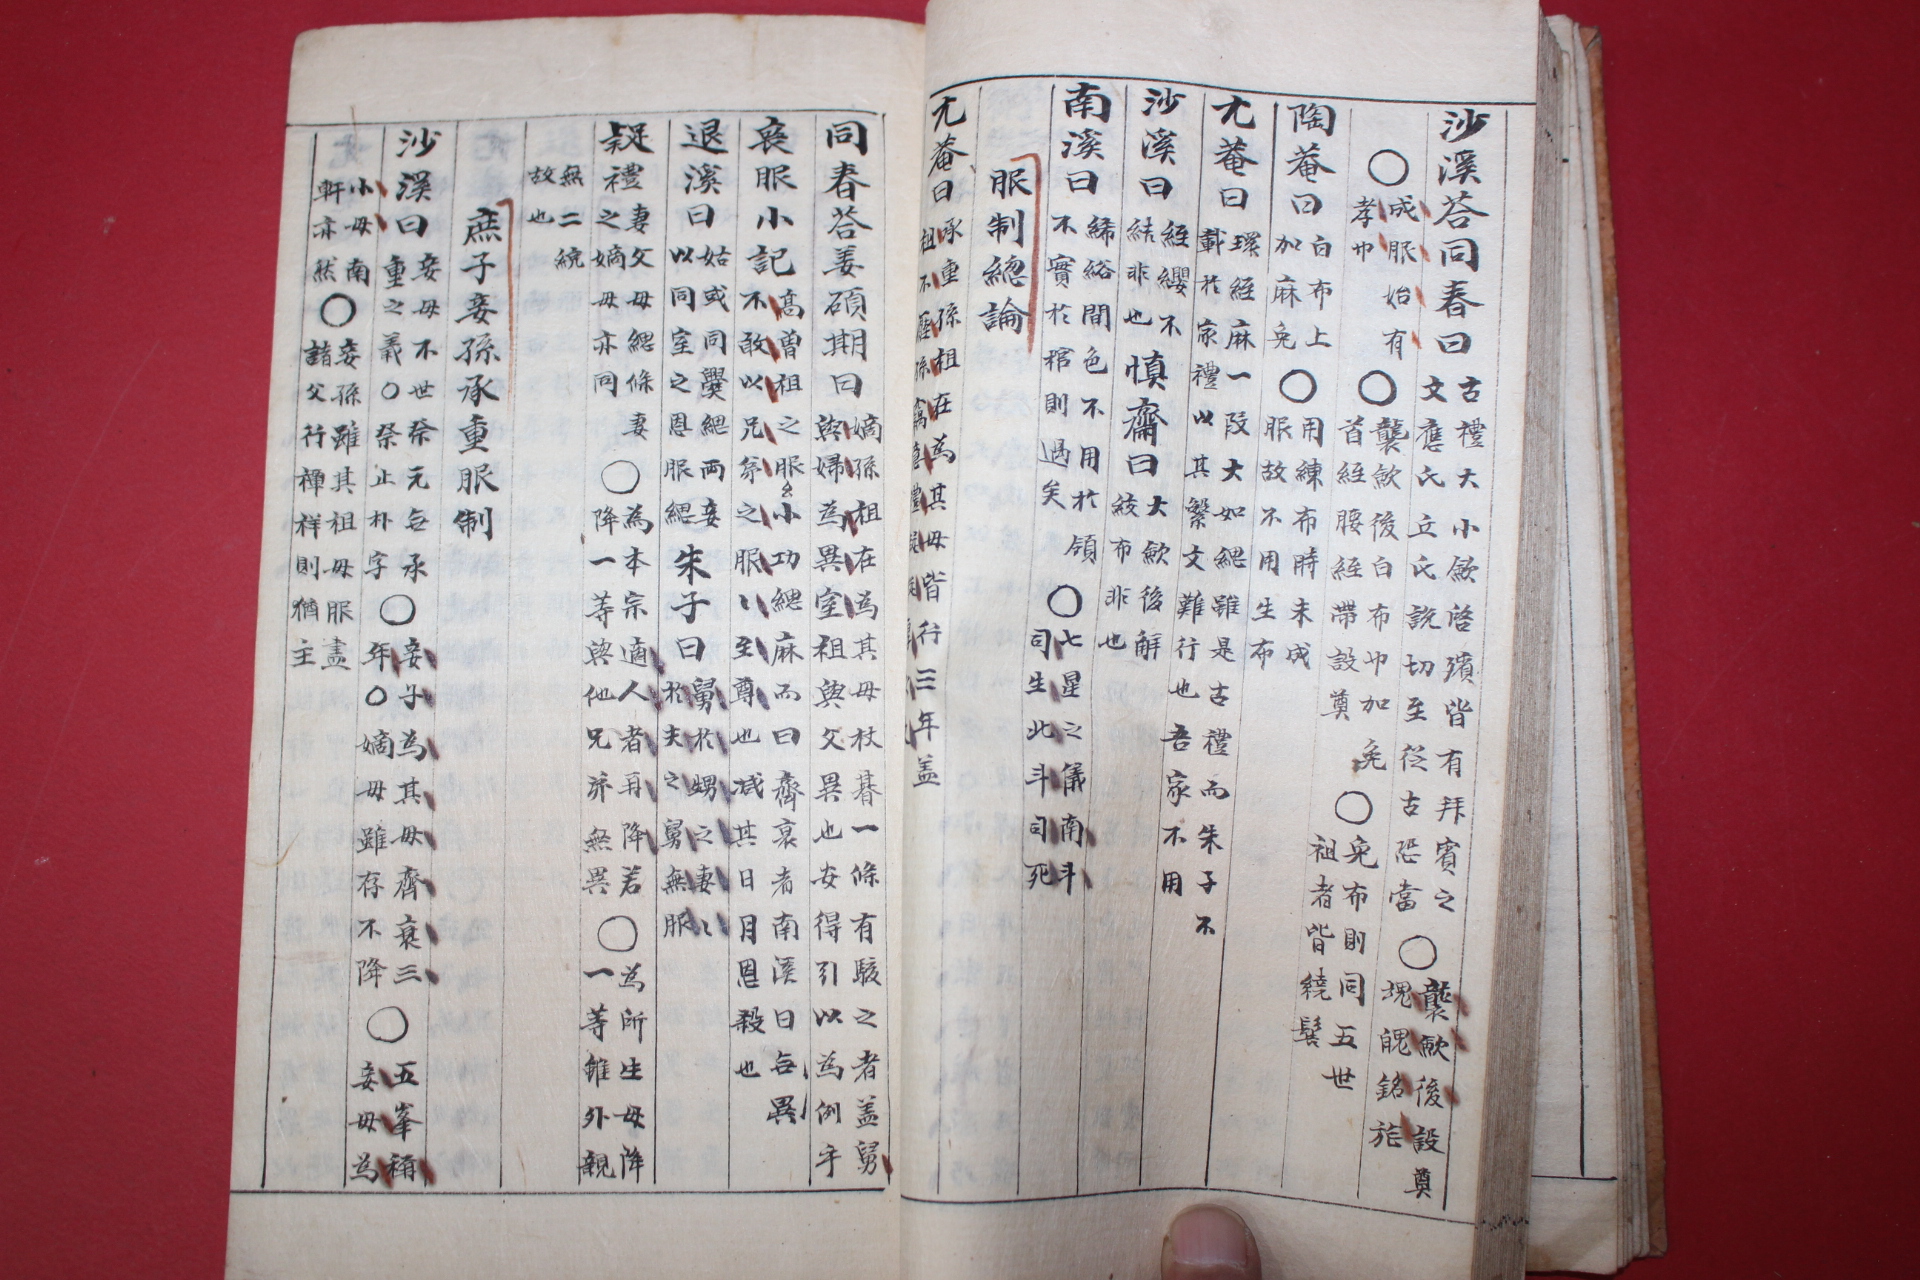 沙溪答同春曰古禮大小斂啓殯皆有拜賓之
文應氏立氏說切至從古恐當○襲斂後設奠
魂魄銘旌
○成服始有
孝巾○襲斂後白布巾加免
首絰腰絰帶設奠○免布則同五世
祖者皆繞髻
陶菴曰白布上
加麻免○用練布時未成
服故不用生布
尤菴曰環絰麻一段大如緦雖是古禮而朱子不
載於家禮以其繁文難行也吾家不用
沙溪曰絰纓不
結非也慎齋曰大斂後解
絞布非也
南溪曰絺綌間色不用於領
不實於棺則過矣○七星之儀南斗
司生此斗司死
服制總論
尤菴曰承重孫祖在為其母皆行三年盖
祖不壓孫
同春答姜碩期曰嫡孫祖在為其母杖朞一條有駁之者盖舅
與婦為異室祖與父異也安得引以為例乎
喪服小記高曾祖之服以小功緦麻而曰齊衰者南溪曰無異
不敢以兄弟之服〻至尊也减其日月恩殺也
退溪曰姑或同爨緦兩妾
以同室之恩服緦朱子曰舅於甥之妻〻
於夫之舅無服
疑禮妻父母緦條妻
之嫡母亦同○為本宗適人者再降若
降一等與他兄弟無異○為所生母降
一等雖外親
無二統
故也
庶子妾孫承重服制
沙溪曰妾母不世祭元無承
重之義○祭止朴字○妾子為其母齊衰三
年○嫡母雖存不降○五峯稱
妾母為
小母南
軒亦然○妾孫雖其祖母服盡
諸父行禫祥則猶主